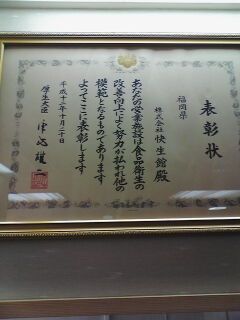 表彰状
福岡県
株式会社 快生館殿
あなたの営業施設は食品衛生の
改善向上によく努力が払われ他の
模範となるものであります
よってここに表彰します
平成十二年十月二十日
厚生大臣 津島雄二